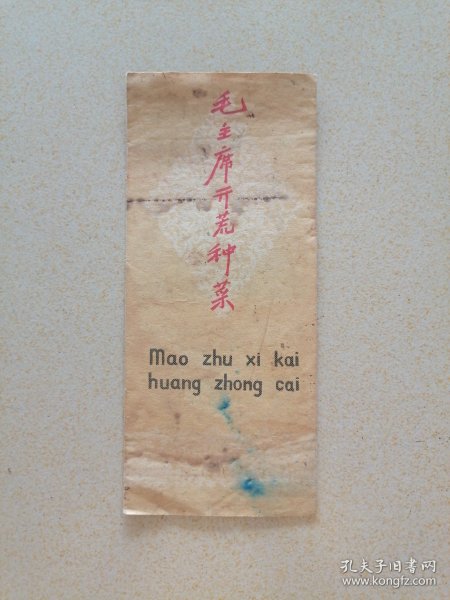 毛主席开荒种菜
Mao zhu xi kai
huang zhong cai
孔夫子旧书网
www.kongfz.com